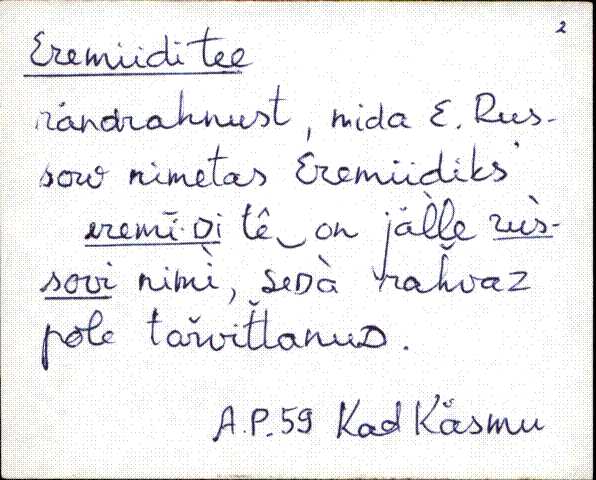 2
Eremiidi tee
rändrahnust, mida E. Rus-
sow nimetas Eremiidiks
eremī·Di tê‿on jäl̀le rus̀-
sovi nimì, seDà rahvaz
pole tarvitlanuD.
A.P. 59 Kad Käsmu